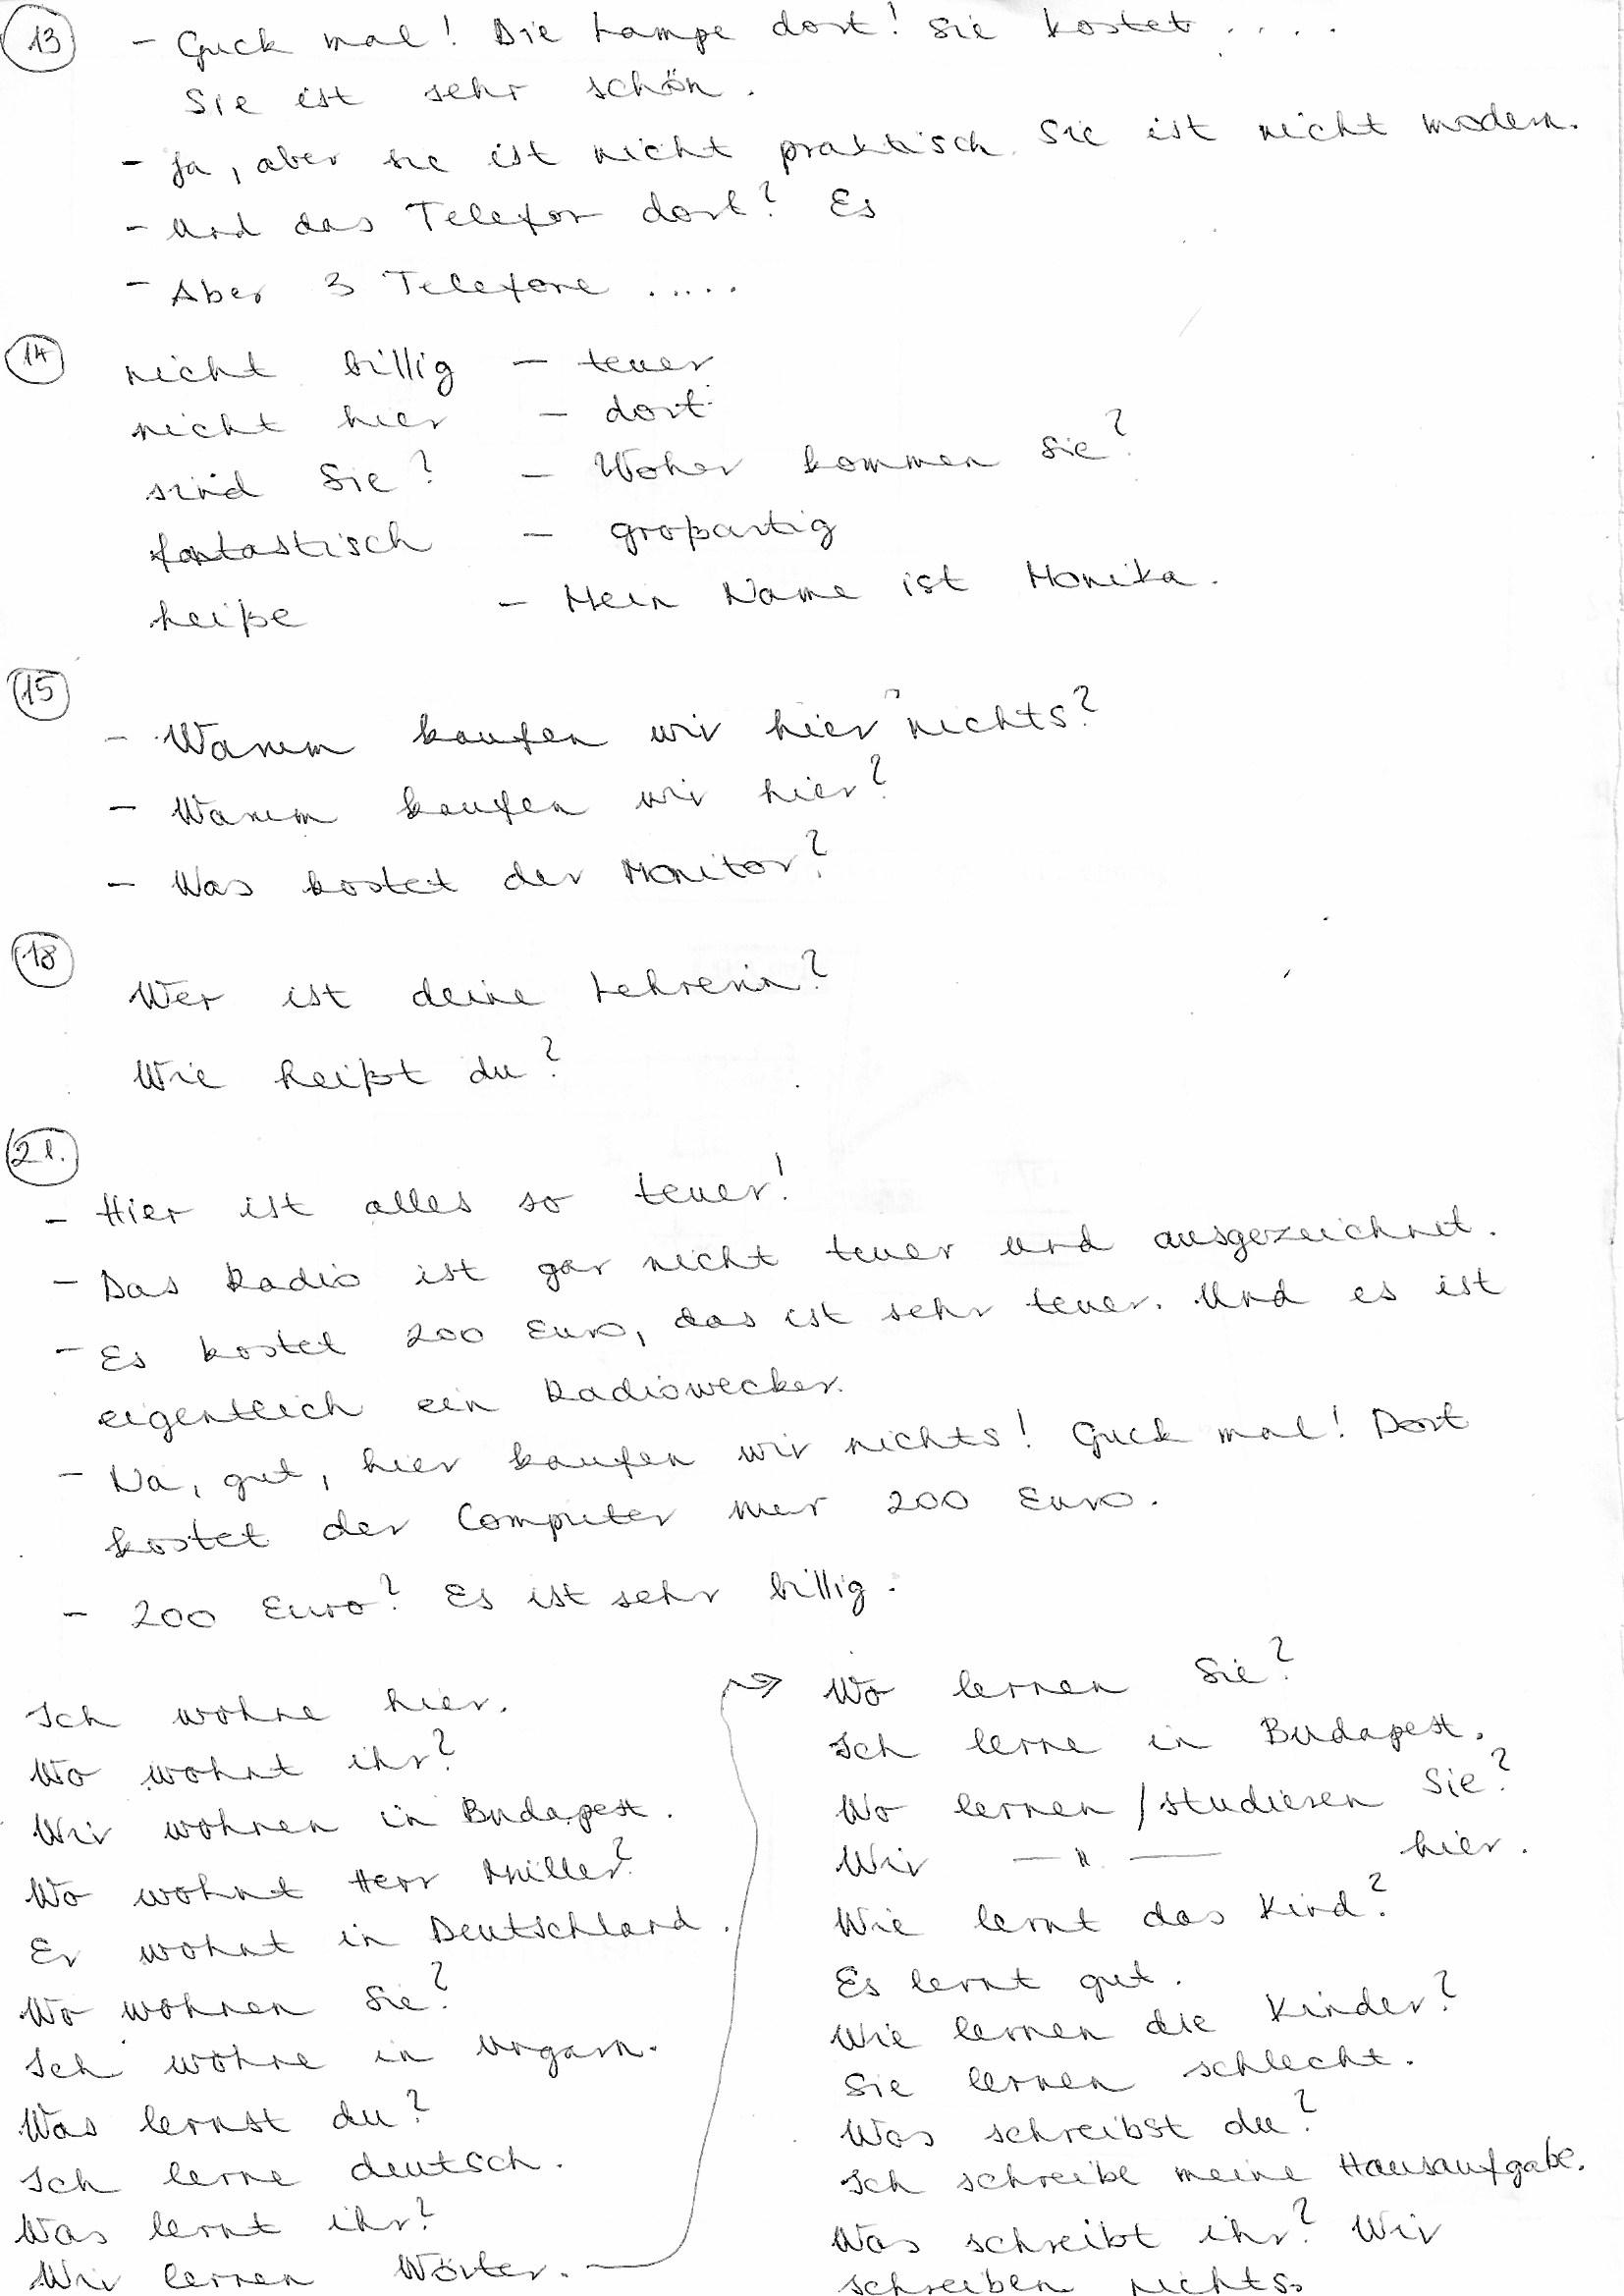 13 - Guck mal! Die Lampe dort! Sie kostet ....
Sie ist sehr schön.
- Ja, aber sie ist nicht praktisch. Sie ist nicht modern.
- Und das Telefon dort? Es
- Aber 3 Telefone .....
14 nicht billig - teuer
nicht hier - dort
sind Sie? - Woher kommen Sie?
fantastisch - großartig
heiße - Mein Name ist Monika.
15
- Warum kaufen wir hier nichts?
- Warum kaufen wir hier?
- Was kostet der Monitor?
18
Wer ist deine Lehrerin?
Wie heißt du?
21.
- Hier ist alles so teuer!
- Das Radio ist gar nicht teuer und ausgezeichnet.
- Es kostet 200 Euro, das ist sehr teuer. Und es ist
eigentlich ein Radiowecker.
- Na, gut, hier kaufen wir nichts! Guck mal! Dort
kostet der Computer nur 200 Euro.
- 200 Euro? Es ist sehr billig.
Ich wohne hier.
Wo wohnt ihr?
Wir wohnen in Budapest.
Wo wohnt Herr Müller?
Er wohnt in Deutschland.
Wo wohnen Sie?
Ich wohne in Ungarn.
Was lernst du?
Ich lerne deutsch.
Was lernt ihr?
Wir lernen Wörter.
Wo lernen Sie?
Ich lerne in Budapest.
Wo lernen / studieren Sie?
Wir — " — hier.
Wie lernt das Kind?
Es lernt gut.
Wie lernen die Kinder?
Sie lernen schlecht.
Was schreibst du?
Ich schreibe meine Hausaufgabe.
Was schreibt ihr? Wir
schreiben nichts.